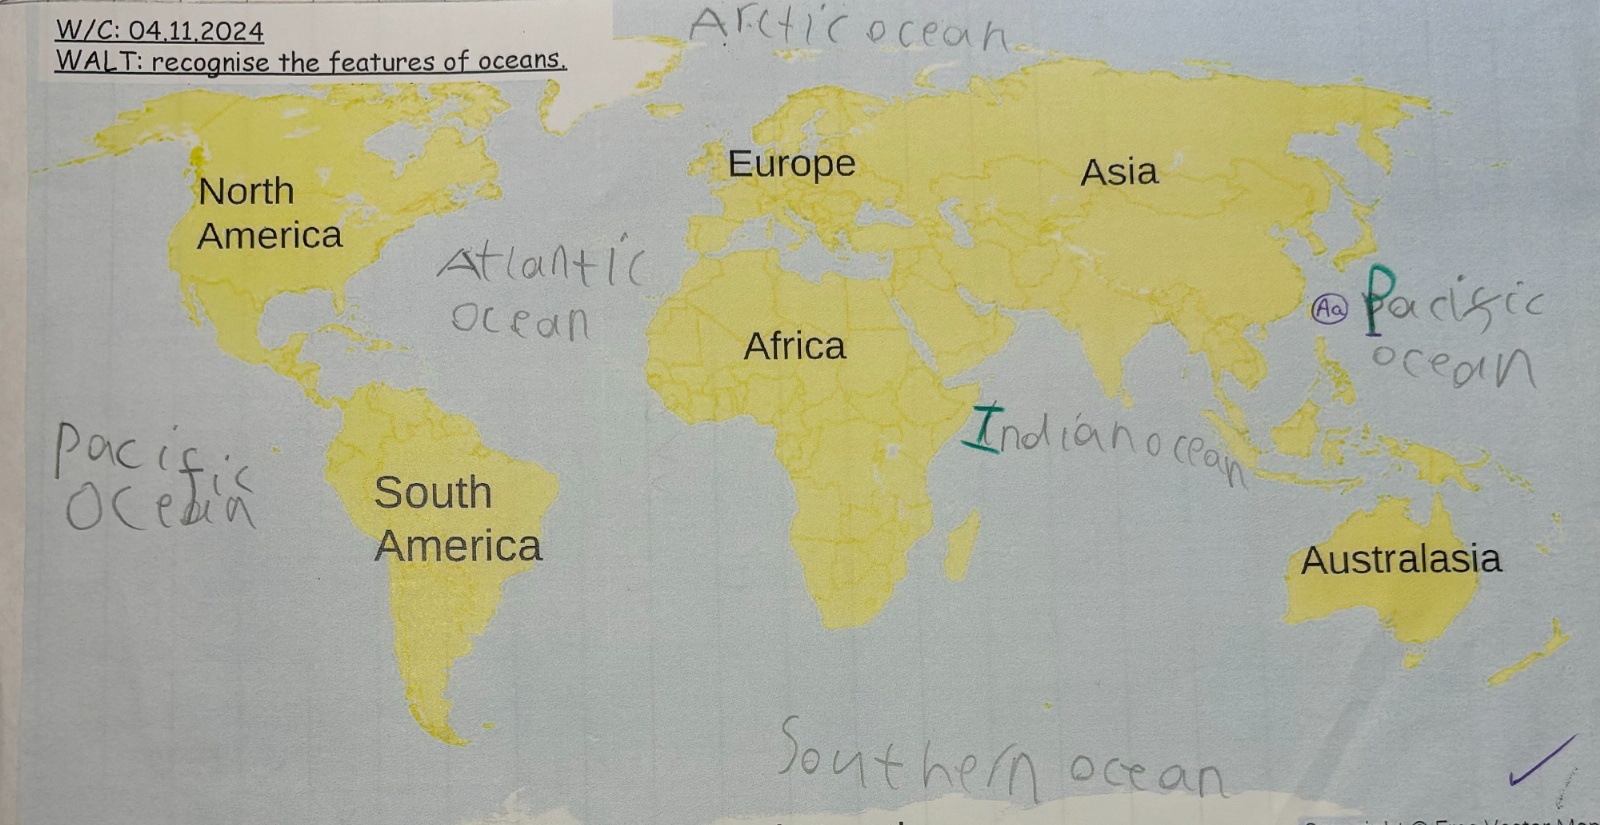 W/C: 04.11.2024
WALT: recognise the features of oceans.
Arctic ocean
North
America
Europe
Asia
Atlantic
ocean
Africa
Aa Pacific
ocean
Indian ocean
Pacific
Ocean
South
America
Australasia
Southern ocean